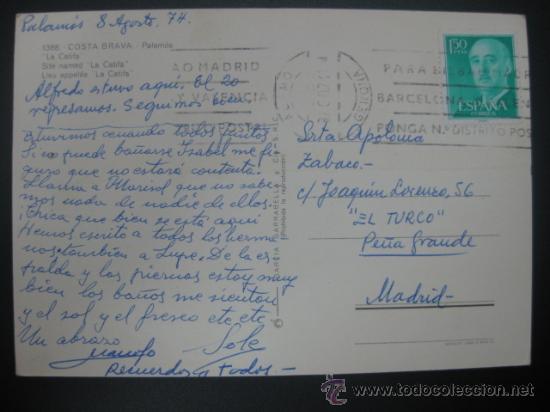 Palamós 8 Agosto, 74.
1386 - COSTA BRAVA - Palamós
"La Catifa"
Site named "La Catifa"
Lieu appellé "La Catifa"
Alfredo estuvo aquí, El 20
regresamos. Seguimos bien
Estuvimos cenando todos juntos
Si no puede bañarse Isabel me fi-
guro que no estará contenta.
Llama a Marisol que no sabe-
mos nada de nadie de ellos.
¡Chica que bien se está aquí
Hemos escrito a todos los herma
nos tambien a Lupe. De la es-
palda y las piernas estoy muy
bien los baños me sientan
y el sol y el fresco etc etc
Un abrazo
Juanjo Sole
Recuerdos a todos -
GARCIA GARRABELLA Y CIA
Prohibida la reproducción
AO MADRID
Y VALENCIA
PARA
BARCELONA
PONGA N.º DISTRITO POS
1'50
PTAS
ESPAÑA
CORREOS
Srta Apolonia
Zabaco.-
c/ Joaquin Lorenzo, 56
"EL TURCO"
Peña Grande
Madrid-
todocoleccion.net